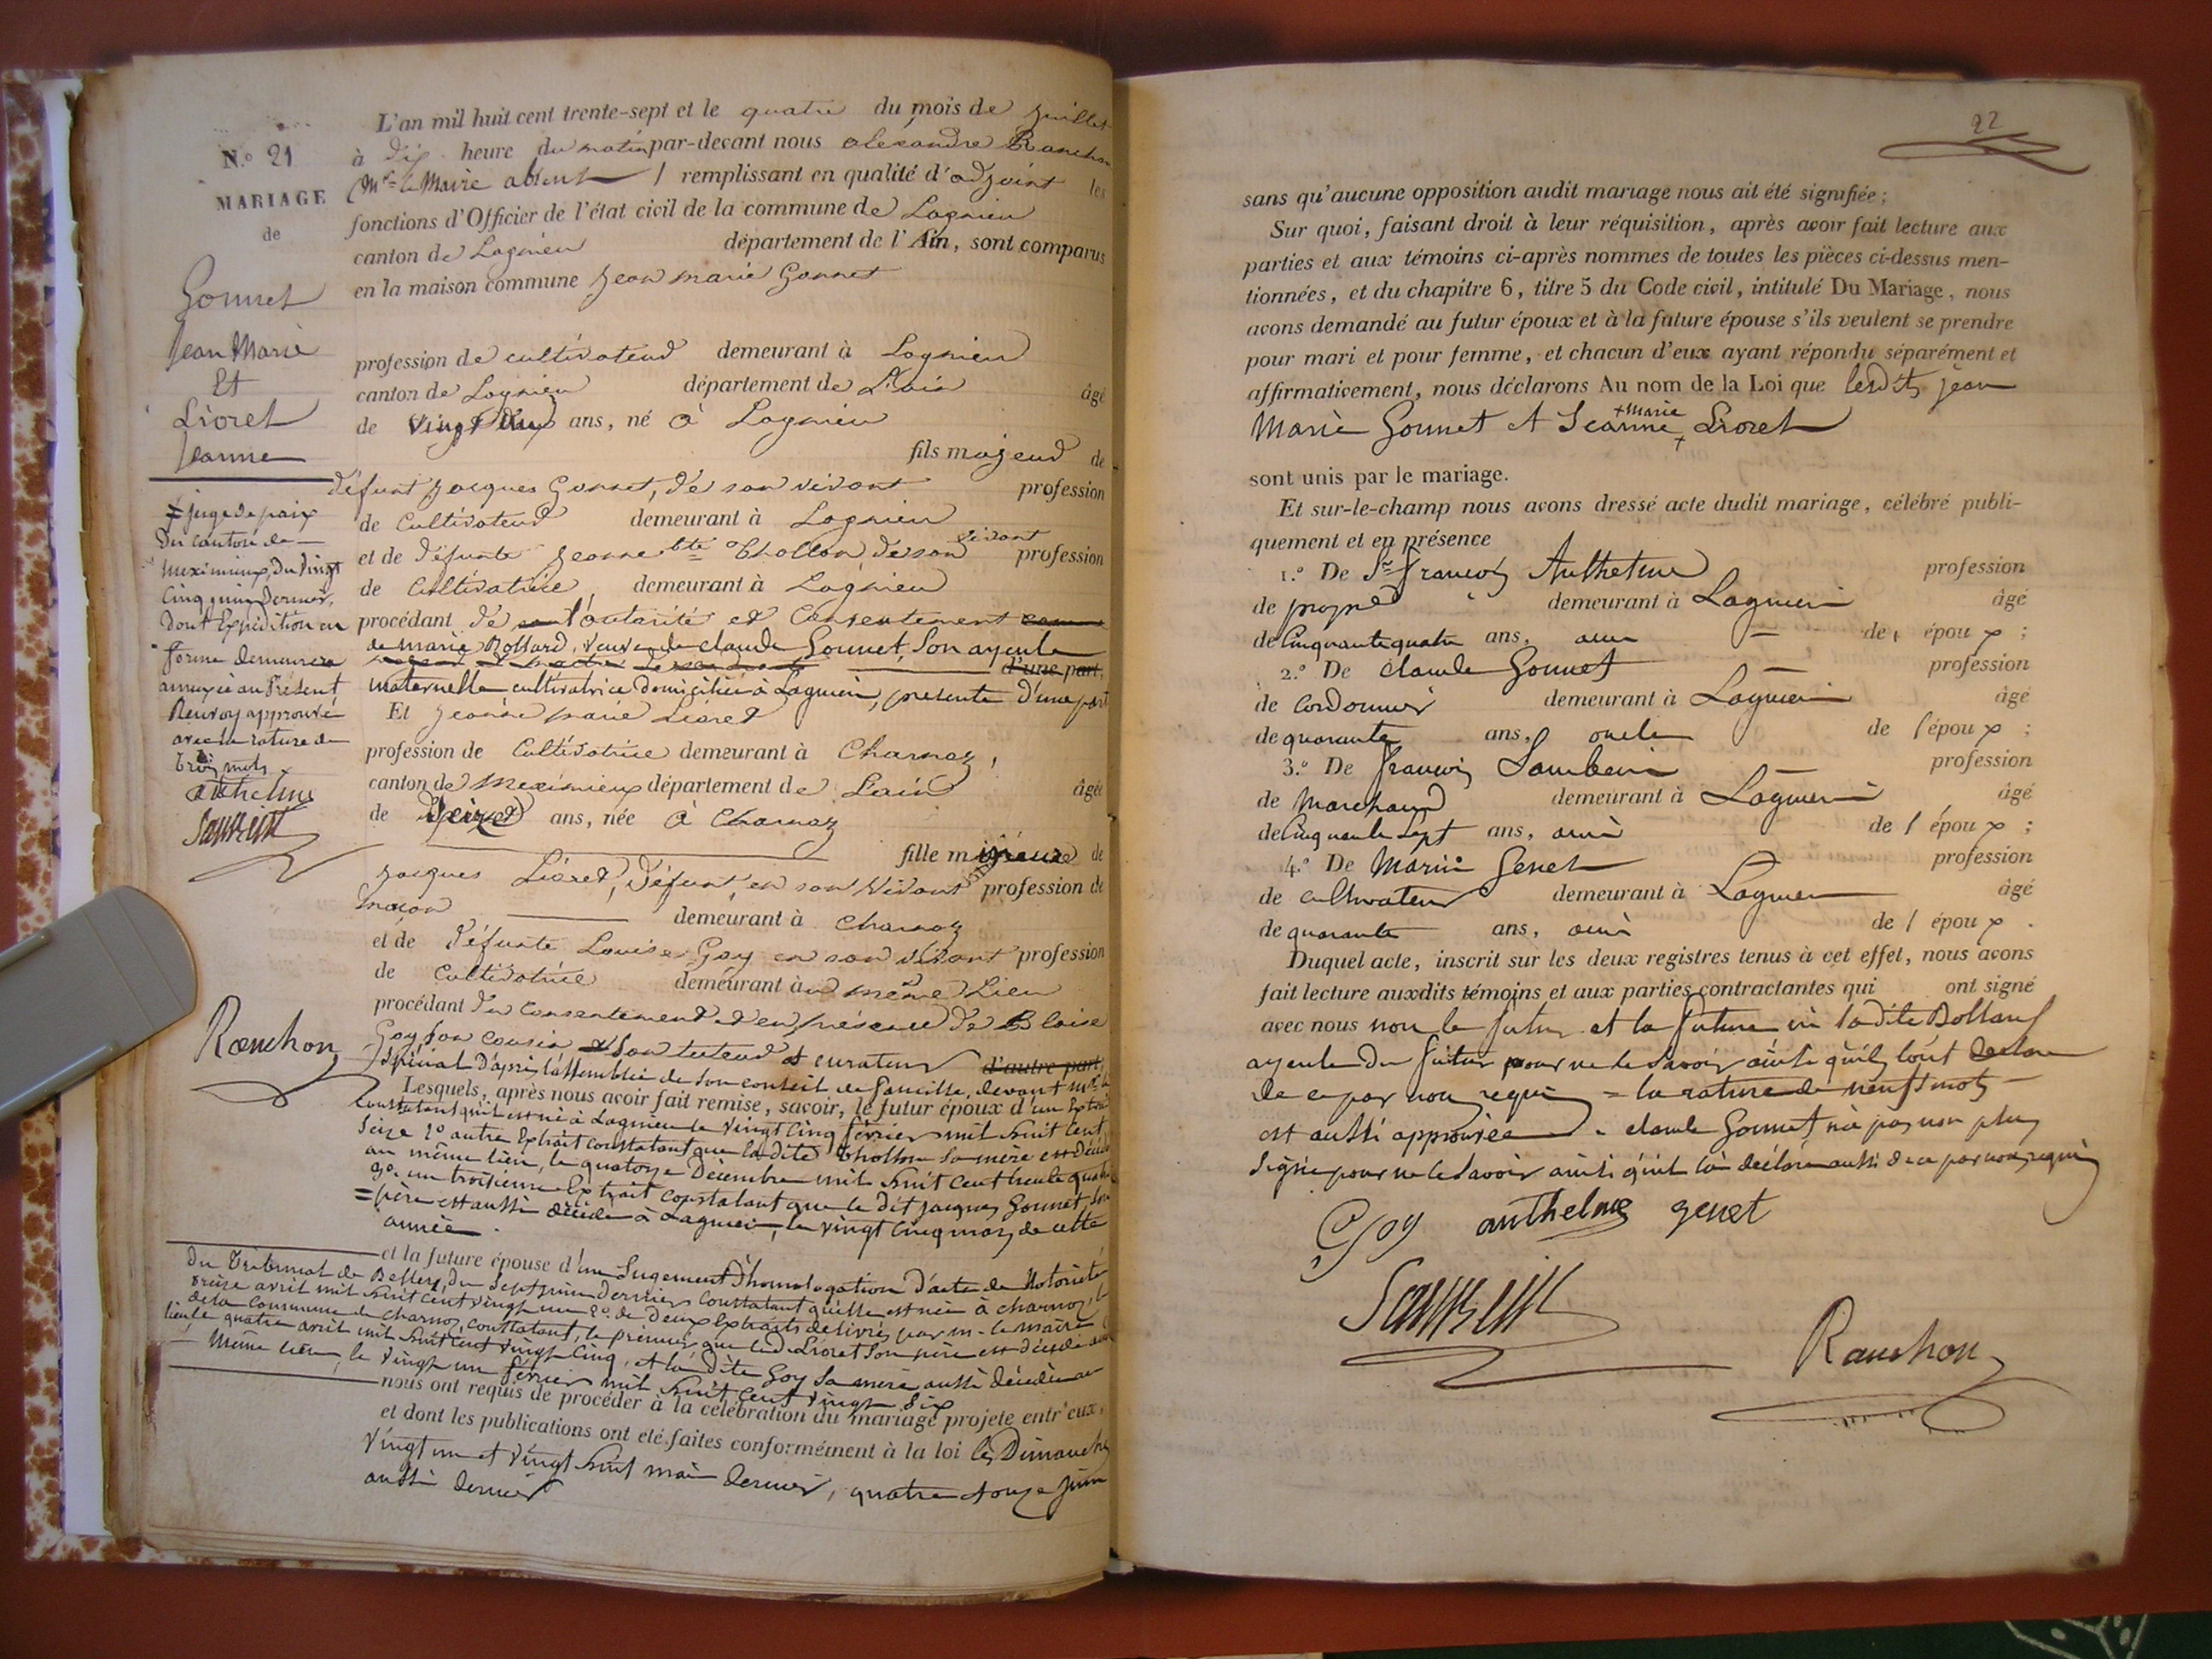 N.o 21
MARIAGE
de
Gonnet
Jean Marie
Et
Lioret
Jeanne
L'an mil huit cent trente-sept et le quatre du mois de juillet
à dix heure du matin par-devant nous alexandre Ranchon
(Mr le Maire absent) remplissant en qualité d'adjoint les
fonctions d'Officier de l'état civil de la commune de Lagnieu
canton de Lagnieu département de l'Ain, sont comparus
en la maison commune jean marie Gonnet
profession de cultivateur demeurant à Lagnieu
canton de Lagnieu département de L'ain âgé
de vingt deux ans, né à Lagnieu
fils majeur de
défunt jacques Gonnet, de son vivant profession
de Cultivateur demeurant à Lagnieu
et de défunte jeanne bte thollon, de son vivant profession
de Cultivatrice, demeurant à Lagnieu
procédant de l'autorité et Consentement
de marie Bottard, veuve de claude Gonnet, Son ayeule
d'une part,
maternelle cultivatrice domiciliée à Lagnieu, présente d'une part
Et jeanne marie Lioret
profession de Cultivatrice demeurant à Charnoz,
canton de meximieux département de L'ain âgée
de seize ans, née à Charnoz
fille mineure de
jacques Lioret, défunt, en son vivant profession de
maçon demeurant à Charnoz
et de défunte Louise Goy en son vivant profession
de Cultivatrice demeurant à même Lieu
procédant du consentement et en présence de Blaise
Goy, son cousin son tuteur et curateur d'autre part,
Spécial d'après l'assemblée de son conseil de famille, devant mr le
≠ juge de paix
du canton de
meximieux, du vingt
cinq juin dernier,
dont Expédition en
forme demeurera
annexée au Présent
Renvoy approuvé
avec la rature de
trois mots
anthelme
Ranchon
Lesquels, après nous avoir fait remise, savoir, le futur époux d'un Extrait
Constatant qu'il est né à Lagnieu le vingt cinq février mil huit cent
Seize 2o autre Extrait constatant que la dite thollon sa mère est décédée
au même lieu, le quatorze Décembre mil huit cent trente quatre
3o un troisième Extrait constatant que le dit jacques Gonnet, son
= père est aussi décédé à Lagnieu, le vingt cinq mars de cette
année.
et la future épouse d'un Jugement d'homologation d'acte de Notoriété
du Tribunal de Belley, du sept juin dernier constatant qu'elle est née à charnoz, le
treize avril mil huit cent vingt un 2o de deux Extraits délivrés par m. le maire
de la commune de charnoz, constatant, le premier que led. Lioret son père est décédé au
lieu, le quatre avril mil huit cent vingt cinq, et la dite Goy sa mère aussi décédée au
Même lieu, le vingt un février mil huit cent vingt six
nous ont requis de procéder à la célébration du mariage projeté entr'eux,
et dont les publications ont été faites conformément à la loi les Dimanches
vingt un et vingt huit mai dernier, quatre et onze juin
aussi dernier
22
sans qu'aucune opposition audit mariage nous ait été signifiée;
Sur quoi, faisant droit à leur réquisition, après avoir fait lecture aux
parties et aux témoins ci-après nommes de toutes les pièces ci-dessus men-
tionnées, et du chapitre 6, titre 5 du Code civil, intitulé Du Mariage, nous
avons demandé au futur époux et à la future épouse s'ils veulent se prendre
pour mari et pour femme, et chacun d'eux ayant répondu séparément et
affirmativement, nous déclarons Au nom de la Loi que lesdits jean
+ Marie
Marie Gonnet et Jeanne + Lioret
sont unis par le mariage.
Et sur-le-champ nous avons dressé acte dudit mariage, célébré publi-
quement et en présence
1.o De Sr françois Anthelme profession
de propre demeurant à Lagnieu âgé
de Cinquante quatre ans, ami de l époux;
2.o De claude Gonnet profession
de Cordonnier demeurant à Lagnieu âgé
de quarante ans, oncle de l'époux;
3.o De françois profession
de Marchand demeurant à Lagnieu âgé
de Cinquante Sept ans, ami de l époux;
4.o De Marin Genet profession
de cultivateur demeurant à Lagnieu âgé
de quarante ans, ami de l époux.
Duquel acte, inscrit sur les deux registres tenus à cet effet, nous avons
fait lecture auxdits témoins et aux parties contractantes qui ont signé
avec nous non le futur et la future ni ladite Bottard
ayeule du futur pour ne le savoir ainsi qu'ils l'ont déclaré
de ce par nous requis = la rature de neuf mots
est aussi approuvée. claude Gonnet n'a pas non plus
signé pour ne le savoir ainsi qu'il l'a déclaré aussi de ce par nous requis
Goy anthelme genet
Ranchon